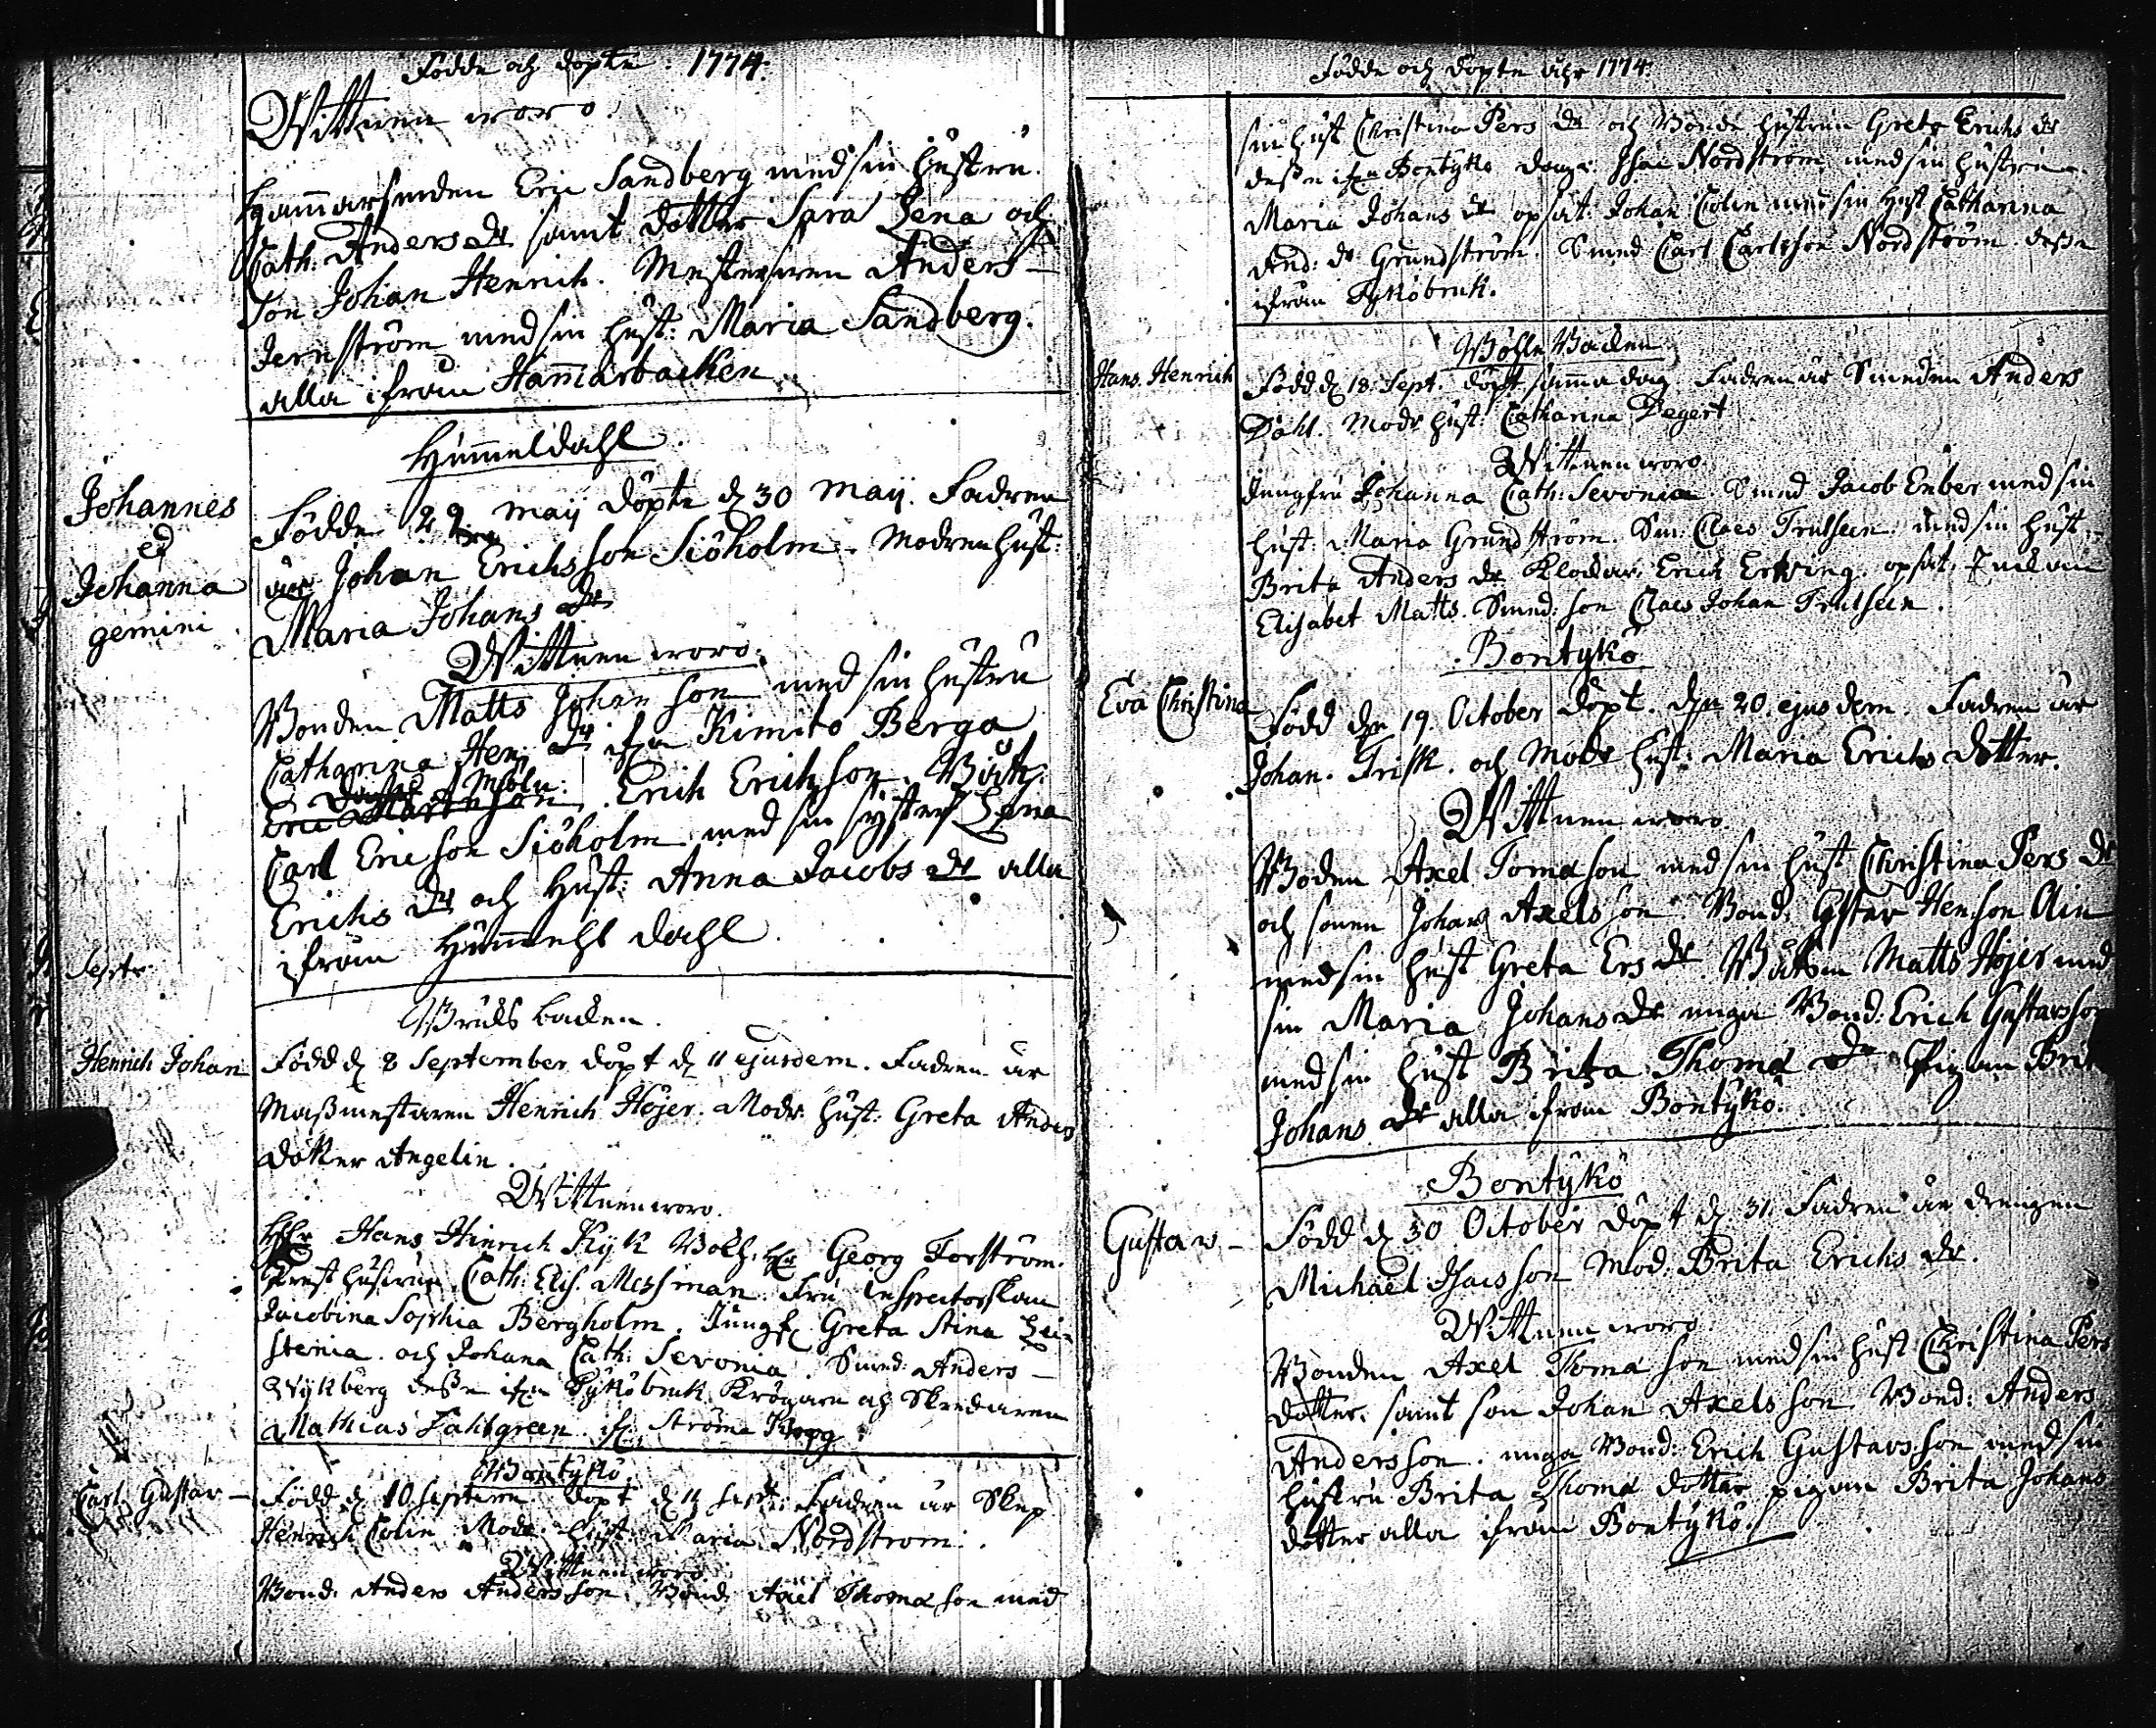 Födde och döpte 1774.
Wittnen woro.
Hammarsmeden Eric Sandberg med sin hustru
Cath: Anders dr samt dotter Sara Lena och
Son Johan Henrich. Mestersven Anders
Jernström med sin hust: Maria Sandberg.
alla ifrån Hammarbacken
Himmeldahl
Johannes
et
Johanna
gemini
Födde 29 Maij döpte d 30 Maij. Fadren
är Johan Erichsson Siöholm. Modren hust:
Maria Johans dr
Wittnen woro.
Bonden Matts Johan son med sin hustru
Catharina Hen: dr ifrn Kimito Berga
Erich Erichson. Båtz:
Carl Ericson Siöholm med sin syster Lena
Erichs dr och Hust: Anna Jacobs dr alla
ifrån Himmels dahl.
Septr
Bruks backen.
Henrich Johan
Född d 8 September döpt d 11 ejusdem. Fadren är
Masmestaren Henrich Höjer. Modr. hust: Greta Anders
dotter Angelin.
Wittnen woro.
Hans Hinrich Kyk Bokh. Hr Georg Forström.
Prest hustrun Cath: Elis. Messman. Fru Inspectorskan
Jacobina Sophia Bergholm. Jungf. Greta Stina
stenia. och Johana Cath: Sevonia. Smed: Anders
Wykberg desse ifrn Tykö bruk Krögaren och Skredaren
Mathias Dahlgreen. ifr. Ströma Krog.
Bontykö.
Carl Gustav
Född d 10 Septem döpt d 11 Sept: Fadren är Skep
Henrich Colin Modr. hust: Maria Nordstrom.
Wittnen woro.
Bond: Anders Andersson. Bond. Axel Thoma son med
Födde och döpte åhr 1774.
sin hust Christina Pers dr och Bonde hustrun Greta Erichs dr
desse ifrn Bontykö. Isac Nordstrom med sin hustru
Maria Johans dr opsät: Johan Colin med sin hust Catharina
And: dr Grundström. Smed Carl Carlsson Nordström. desse
ifrån Tykö bruk.
Böhle Backen
Hans Henrich
Född d 18. Sept. döpt samma dag Fadren är Smeden Anders
Dahl. Modr. hust: Catharina Degert
Wittnen woro
Jungfru Johanna Cath: Sevonia. Smed Jacob Enber med sin
hust: Maria Grundström. Sm: Claes Trulseen med sin hust
Brita Anders dr Klockar: Erich Erving. opsät.
Elisabet Matts. Smed: son Claes Johan Trulseen.
Bontykö
Eva Christina
Född den 19. October döpt. den 20. ejusdem. Fadren är
Johan. Frisk. och Modr hust: Maria Erichs dotter.
Wittnen woro.
Boden Axel Tomason med sin hust Christina Pers dr
och sonen Johan Axelsson. Bond: Gstav Henson
med sin hust Greta Ers dr. Båtsm Matts Höjer med
sin Maria Johans dr unga Bond: Erich Gustavsson
med sin hust Brita Thoma dr Pigan Brita
Johans dr alla ifrån Bontykö.
Bontykö
Gustav
Född d 30 October döpt d. 31. Fadren är drengen
Michael Isacsson Mod: Brita Erichs dr.
Wittnen woro.
Bonden Axel Toma son med sin hust Christina Pers
dotter. samt son Johan Axelsson. Bond: Anders
Andersson. unga Bond: Erich Gustavsson med sin
hustru Brita Thoma dotter pigan Brita Johans
dotter alla ifrån Bontykö.